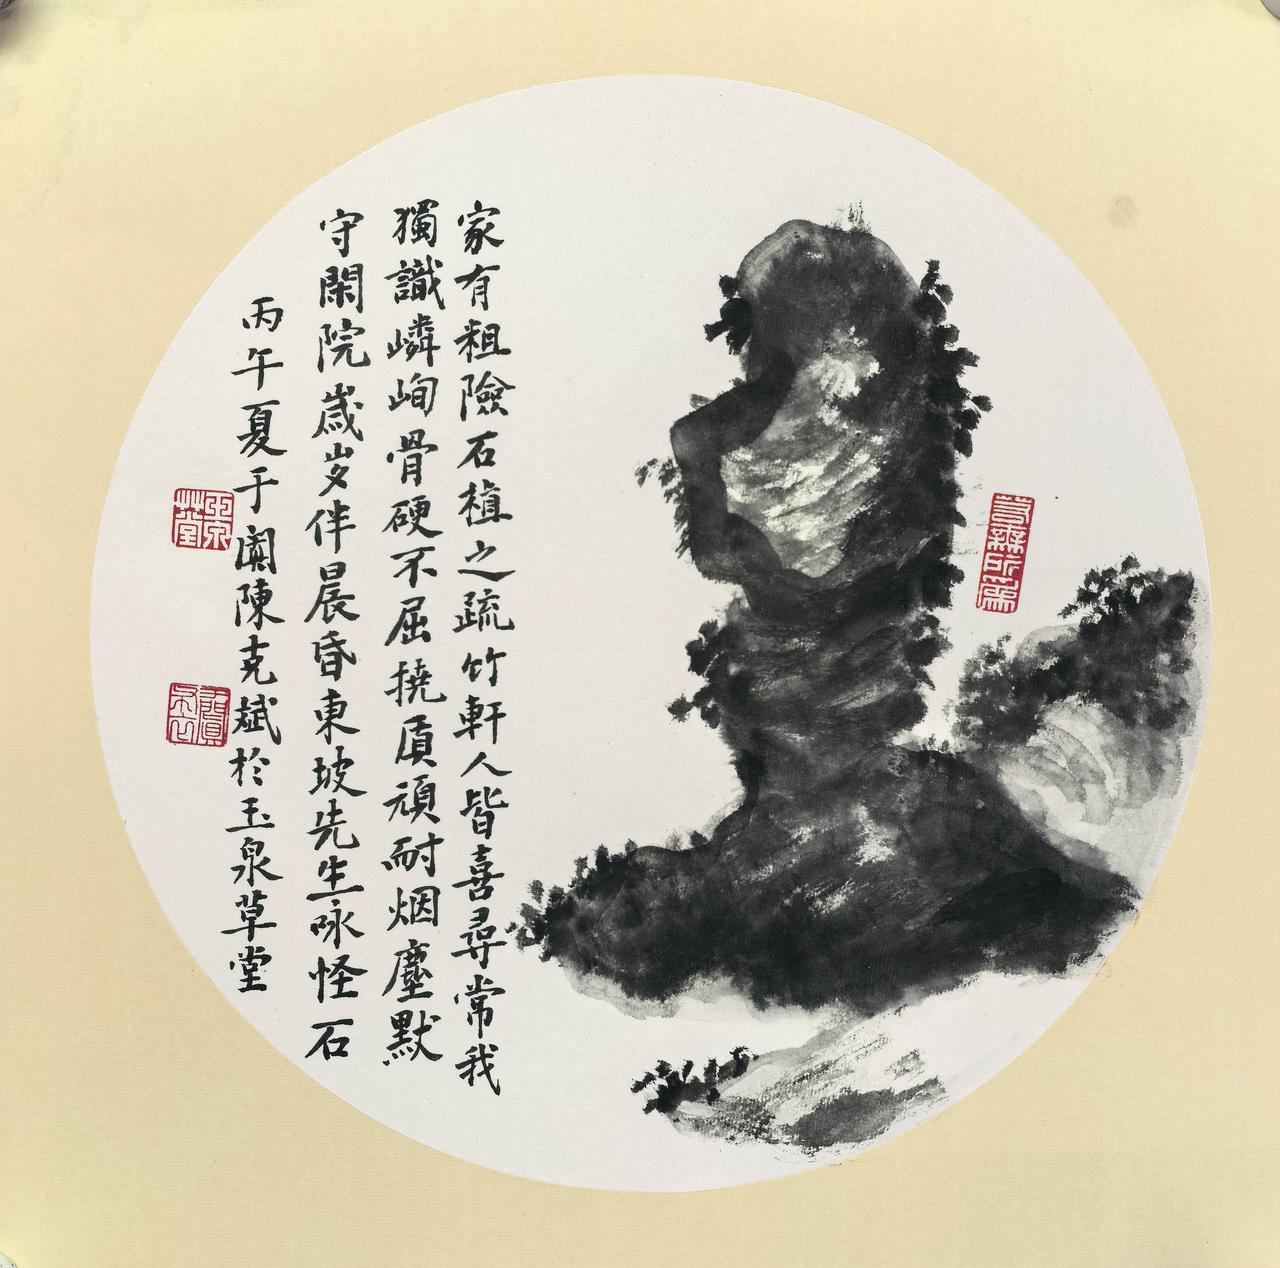 家有粗險石植之疏竹軒人皆喜尋常我
獨識嶙峋骨硬不屈撓質頑耐烟塵默
守閑院歲岁伴晨昏東坡先生咏怪石
丙午夏于闐陳克斌於玉泉草堂
玉泉草堂